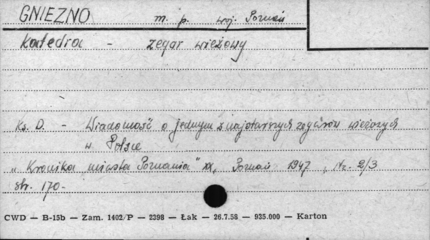 GNIEZNO m. p. woj. Poznań
Katedra - zegar wieżowy
Ks. D. - Wiadomość o jednym z najstarszych zegarów wieżowych
w Polsce
„Kronika miasta Poznania" XX, Poznań 1947, Nr. 2/3
str. 170.
CWD — B-15b — Zam. 1402/P — 2298 — Łak — 26.7.58 — 925.000 — Karton